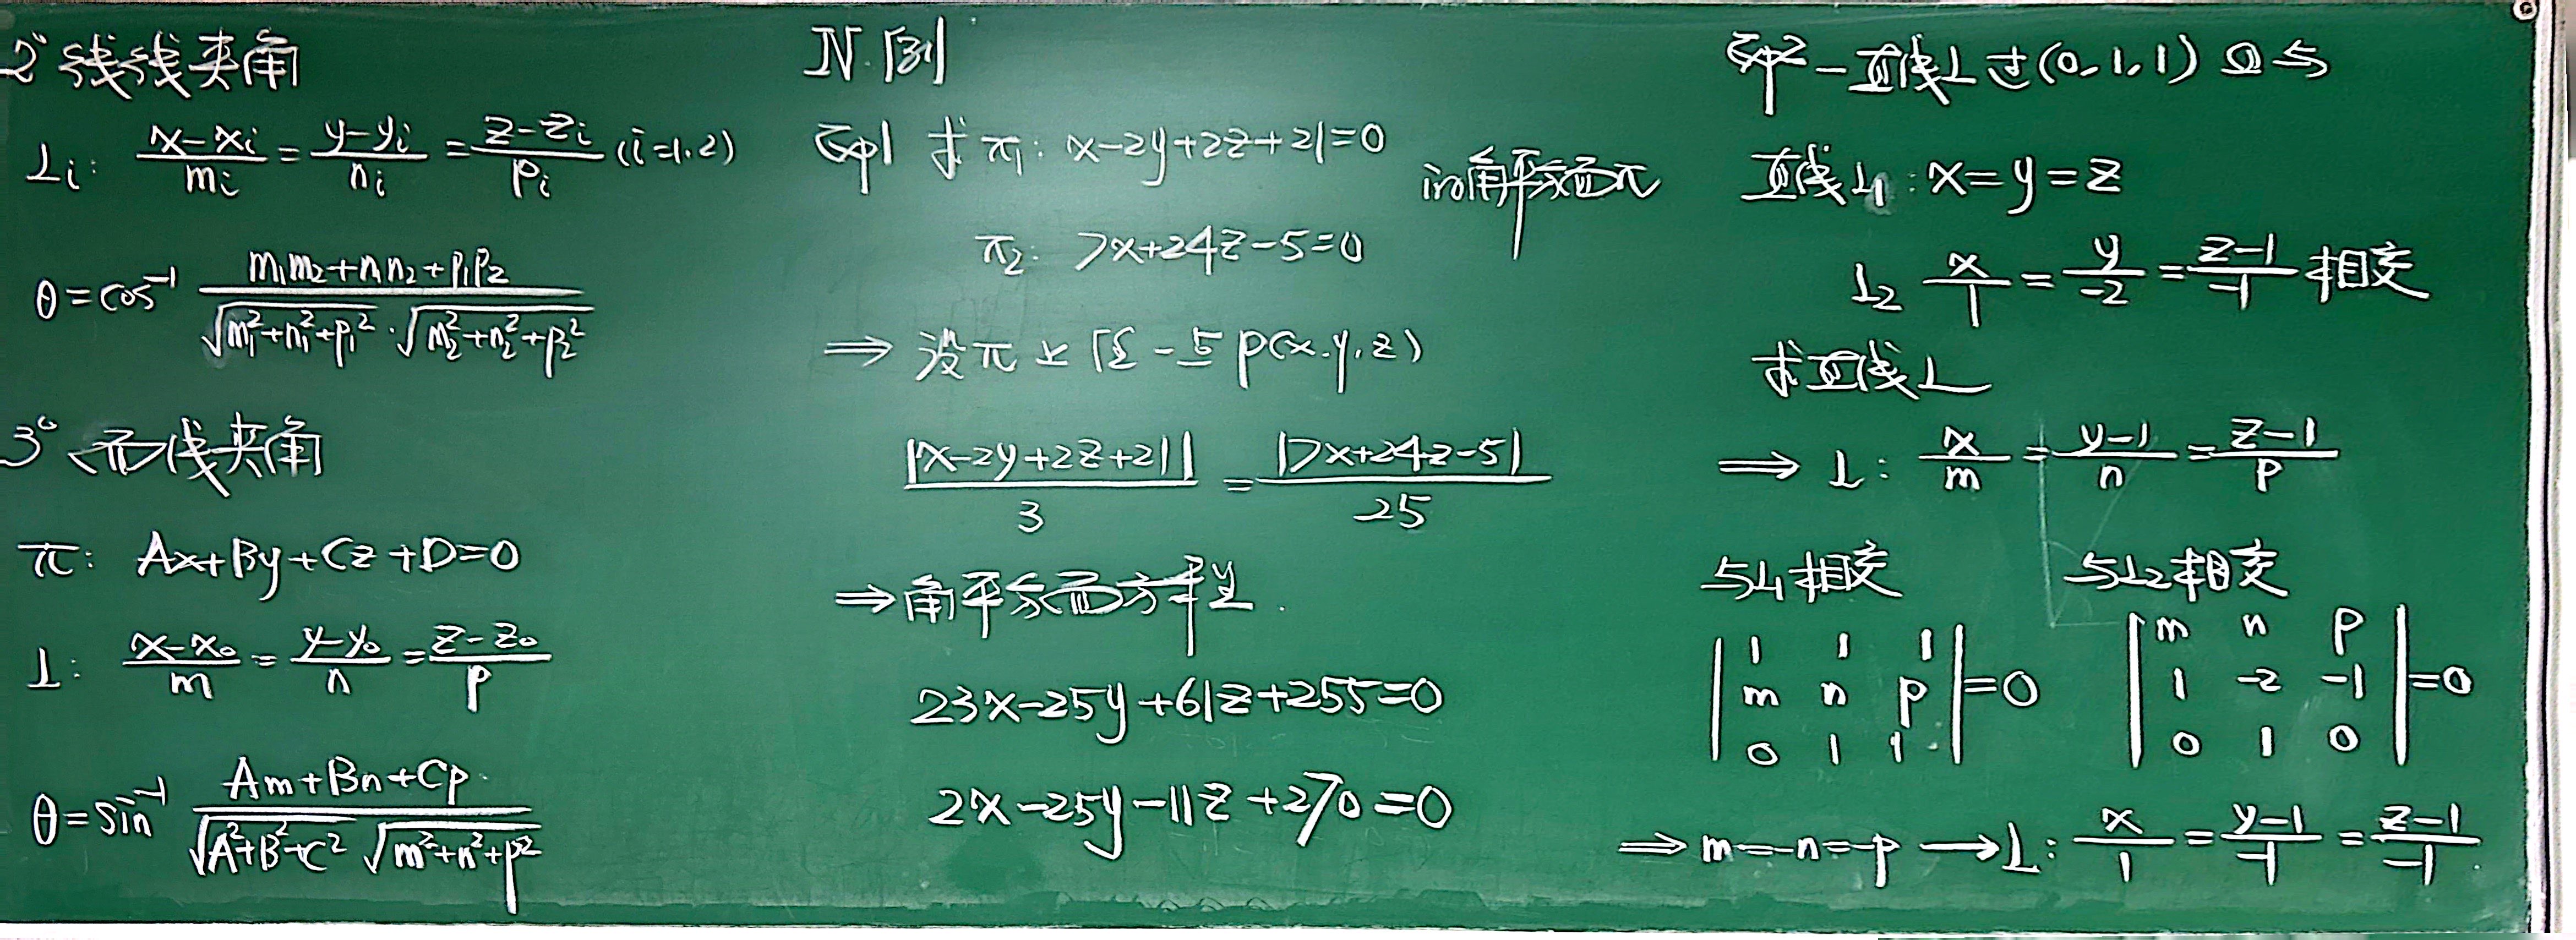 2° 线线夹角
L_i: \frac{x-x_i}{m_i}=\frac{y-y_i}{n_i}=\frac{z-z_i}{p_i} (i=1,2)
θ=cos^{-1} \frac{m_1m_2+n_1n_2+p_1p_2}{\sqrt{m_1^2+n_1^2+p_1^2}·\sqrt{m_2^2+n_2^2+p_2^2}}
3° 面线夹角
π: Ax+By+Cz+D=0
L: \frac{x-x_0}{m}=\frac{y-y_0}{n}=\frac{z-z_0}{p}
θ=sin^{-1} \frac{Am+Bn+Cp}{\sqrt{A^2+B^2+C^2} \sqrt{m^2+n^2+p^2}}
IV. 例
eg1 求π_1: x-2y+2z+21=0
π_2: 7x+24z-5=0
in角平分面π
⇒ 设π上任一点 P(x,y,z)
\frac{|x-2y+2z+21|}{3}=\frac{|7x+24z-5|}{25}
⇒ 角平分面方程.
23x-25y+61z+255=0
2x-25y-11z+270=0
eg2 一直线L过(0,1,1)且与
直线L_1: x=y=z
L_2 \frac{x}{1}=\frac{y}{-2}=\frac{z-1}{-1} 相交
求直线L
⇒ L: \frac{x}{m}=\frac{y-1}{n}=\frac{z-1}{p}
与L_1相交 与L_2相交
\begin{vmatrix}1&1&1\\m&n&p\\0&1&1\end{vmatrix}=0 \begin{vmatrix}m&n&p\\1&-2&-1\\0&1&0\end{vmatrix}=0
⇒ m=-n=-p → L: \frac{x}{1}=\frac{y-1}{-1}=\frac{z-1}{-1}.